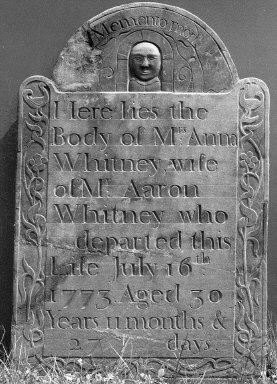 Memento mori
Here lies the
Body of Mrs Anna
Whitney, wife
of Mr. Aaron
Whitney who
departed this
Life July 16th
1773. Aged 30
Years 11 months &
27 days.